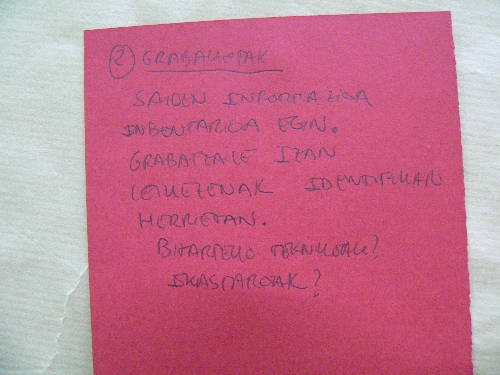 ② GRABAKETAK
SAIOEN INFORMAZIOA
INBENTARIOA EGIN.
GRABATZAILE IZAN
LEIKEZENAK IDENTIFIKAN
HERRIETAN.
BITARTEKO TEKNIKOAK?
IKASTAROAK?